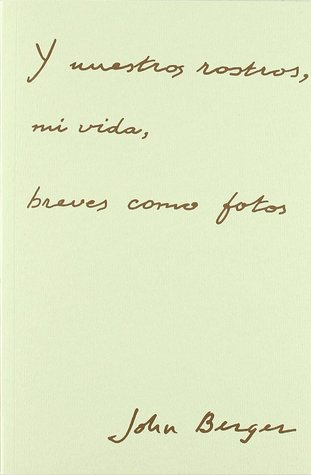 Y nuestros rostros,
mi vida,
breves como fotos
John Berger